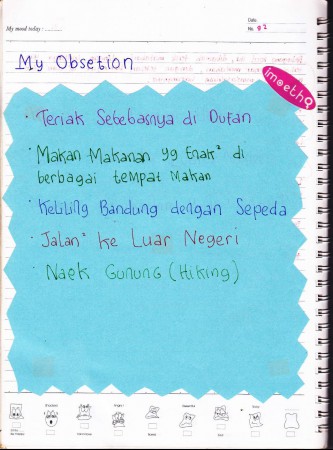 Date:
My mood today:
No. #2
My Obsetion
imoethQ
• Teriak Sebebasnya di Dufan
• Makan Makanan yg Enak² di
berbagai tempat Makan
• Keliling Bandung dengan Sepeda
• Jalan² ke Luar Negeri
• Naek Gunung (Hiking)